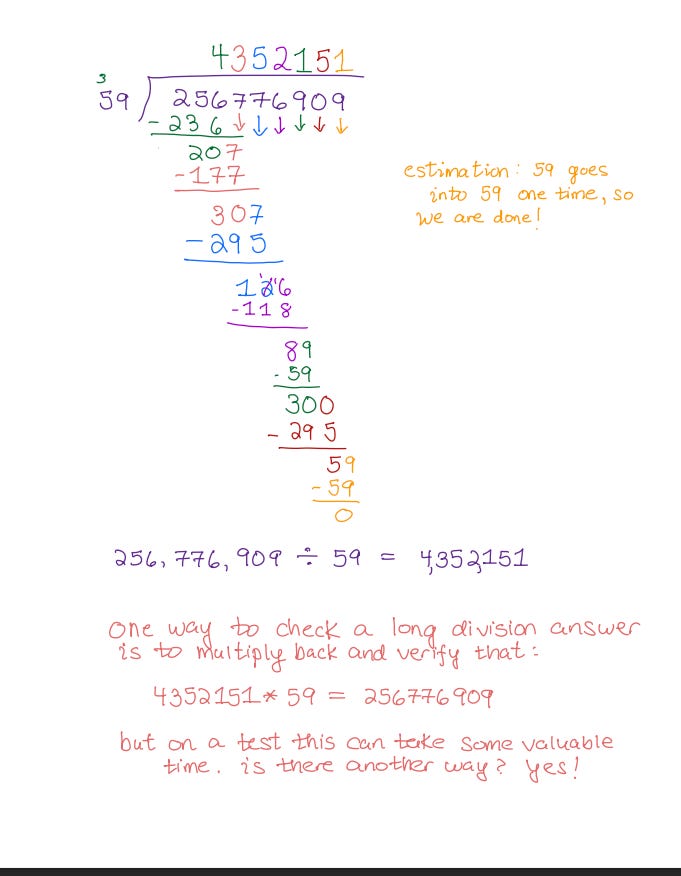 4352151
3
59 256776909
- 236
207
-177
307
- 295
126
-118
89
- 59
300
- 295
59
- 59
0
estimation: 59 goes
into 59 one time, so
we are done!
256,776,909 ÷ 59 = 4,352,151
One way to check a long division answer
is to multiply back and verify that:
4352151 * 59 = 256776909
but on a test this can take some valuable
time. is there another way? yes!